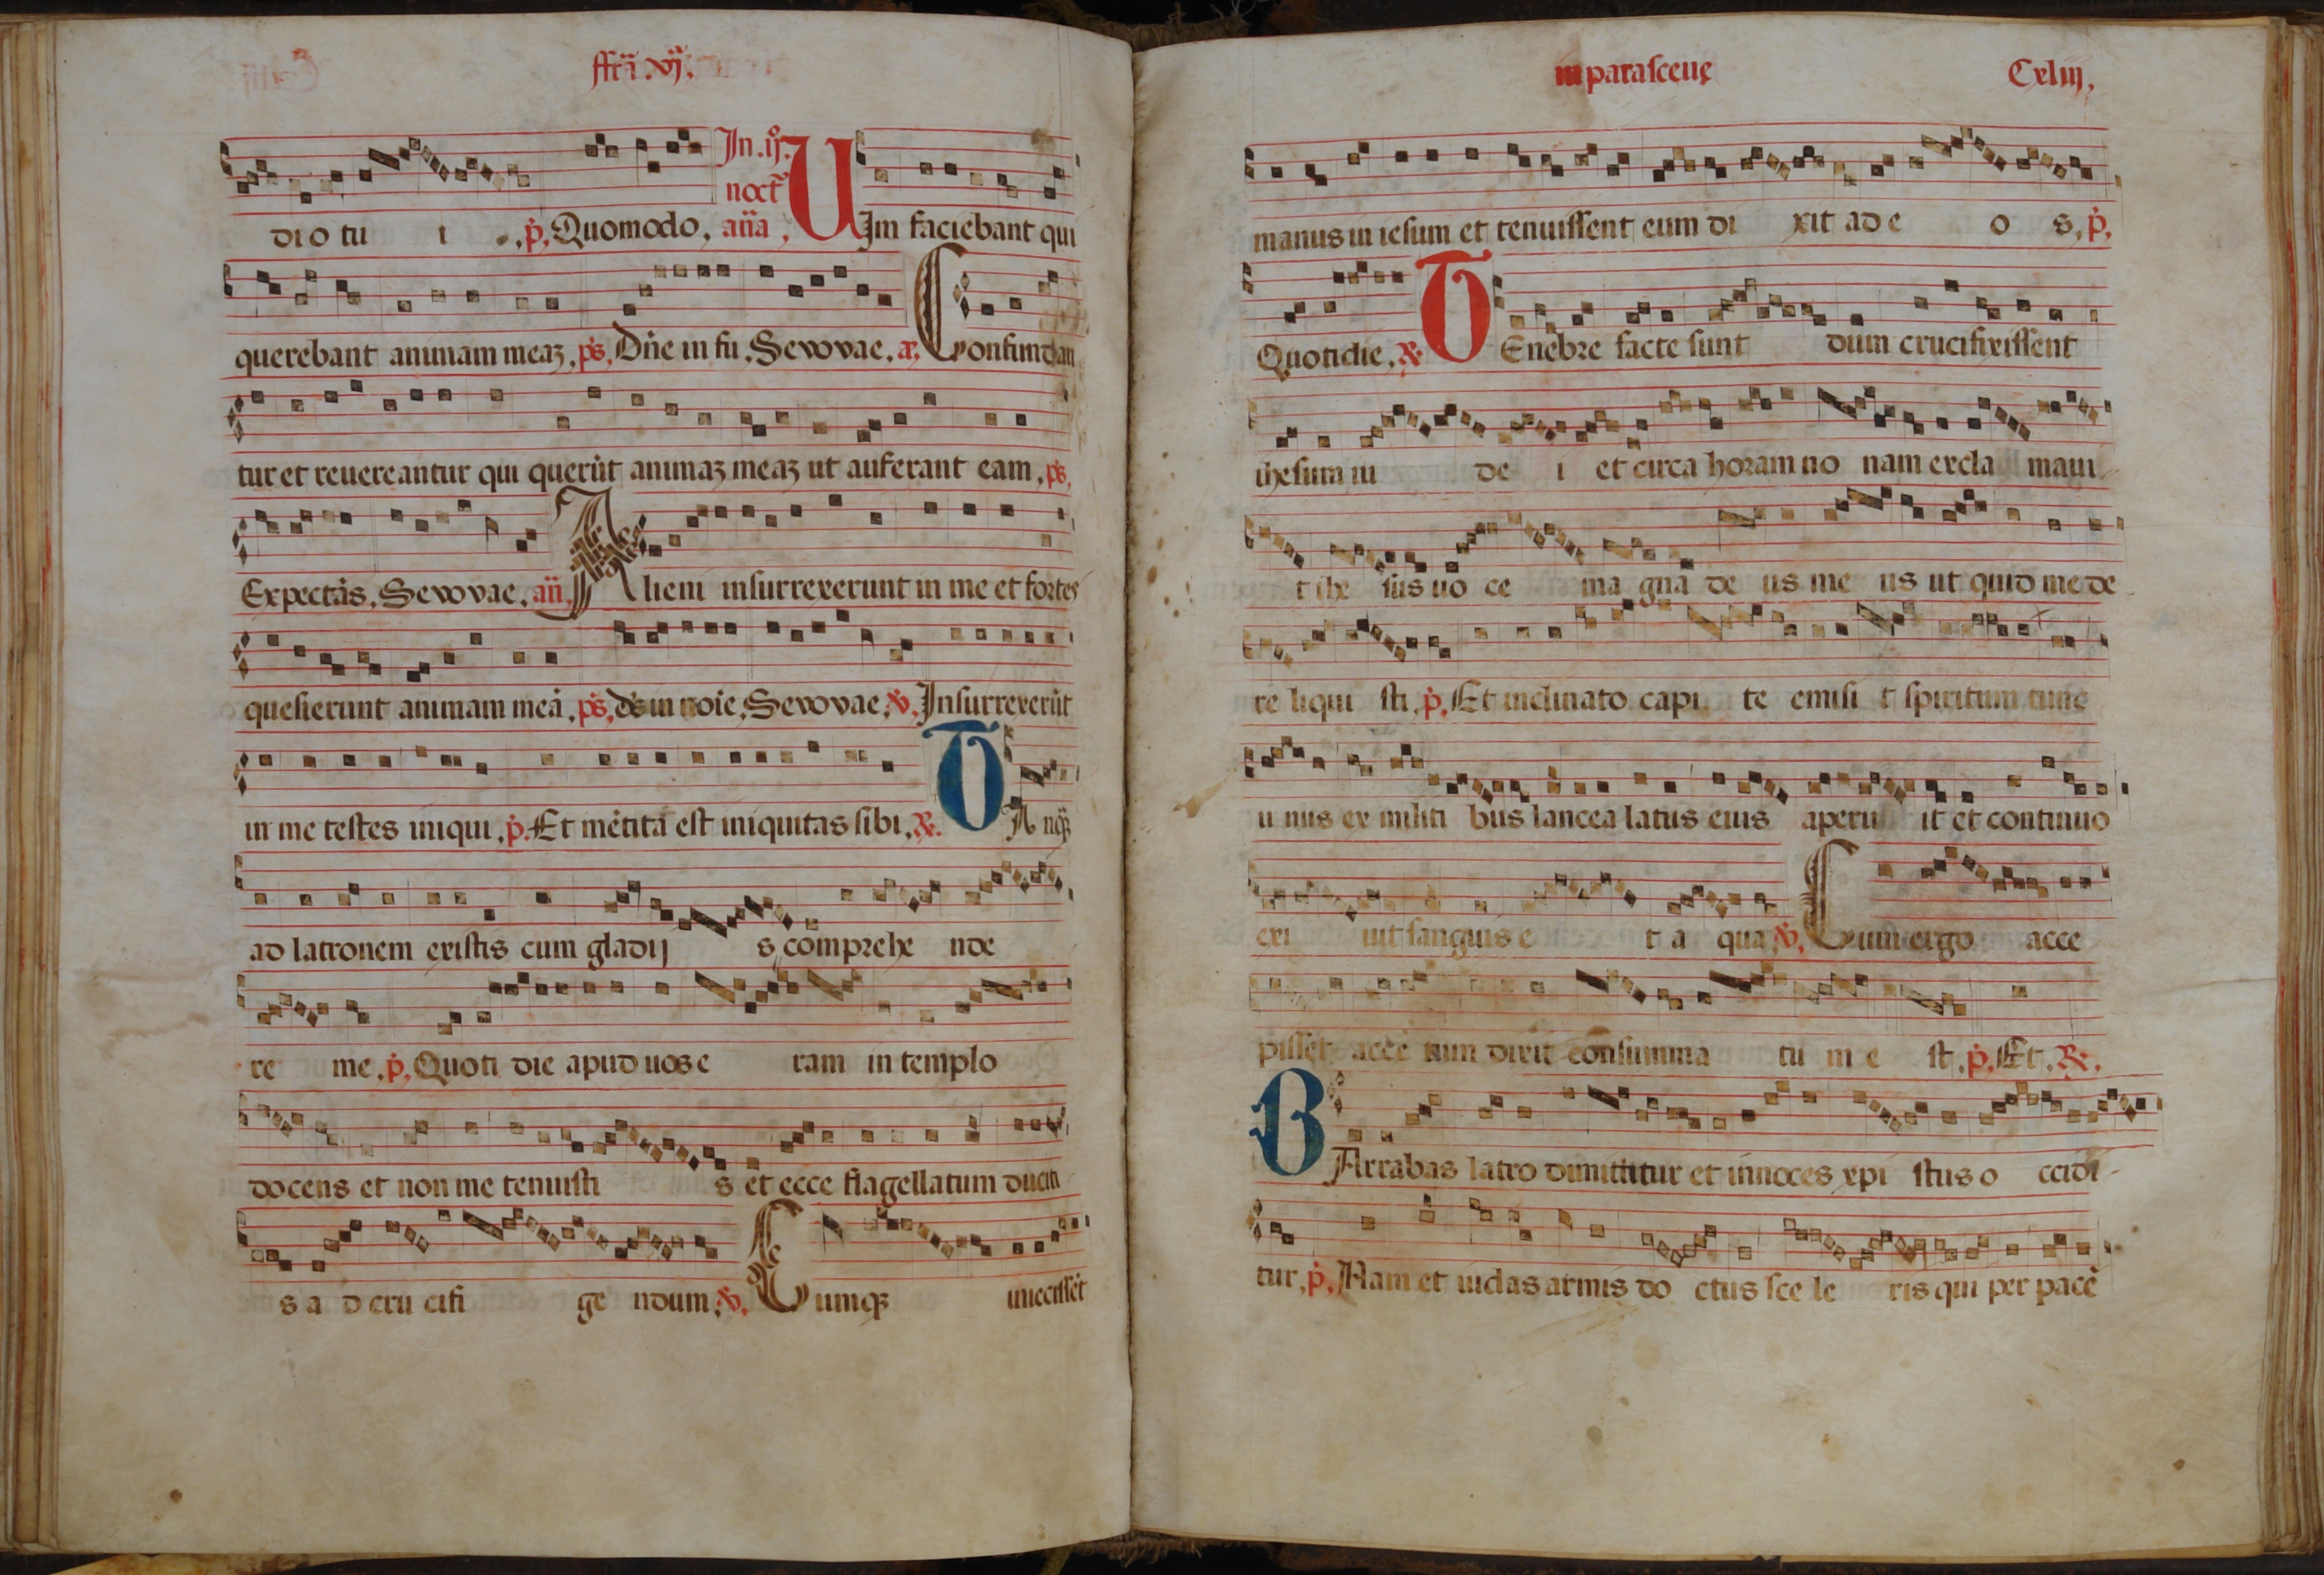 ffr̄a .vj.
In .ij.º
noct̄
dio tu i . p̄. Quomodo. an̄a, UIm faciebant qui
querebant animam meaꝫ. ps̄. Dn̄e in fu. Sevovae. a. Confundan
tur et reuereantur qui querūt animaꝫ meaꝫ ut auferant eam. ps̄.
Expectās. Sevovae. an̄. Alieni insurrexerunt in me et fortes
quesierunt animam meā. ps̄. ds̄ in noīe. Sevovae. ℣. Insurrexerūt
in me testes iniqui. p̄. Et mētita est iniquitas sibi. ℟. TAnqꝫ
ad latronem existis cum gladij s comprehe nde
re me. p̄. Quoti die apud uos e ram in templo
docens et non me tenuisti s et ecce flagellatum duciti
s a d cru cifi ge ndum. ℣. Cumqꝫ iniecissēt
in parasceuę Cxliij.
manus in iesum et tenuissent eum di xit ad e o s. p̄.
Quotidie. ℟. TEnebre facte sunt dum crucifixissent
ihesum iu de i et circa horam no nam excla maui
t ihe sus uo ce ma gna de us me us ut quid me de
re liqui sti. p̄. Et inclinato capi te emisi t spiritum tunc
u nus ex militi bus lancea latus eius aperu it et continuo
exi uit sanguis e t a qua ℣. Cum ergo acce
pissēt acce tum dixit consumma tu m e st. p̄. Et. ℟.
BArrabas latro dimittitur et innoces xpi stus o ccidi-
tur. p̄. Nam et iudas armis do ctus sce le ris qui per pacē